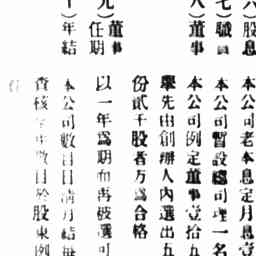 六）股息 本公司老本息定月息壹
七）職員 本公司暫設總司理一名
八）董事 本公司例定董事壹拾五
舉先由創辦人內選出五
份貳千股者方爲合格
九）董事任期 以一年爲期而再被選可
）年結 本公司數目日清月結每
查核年中數目於股東例